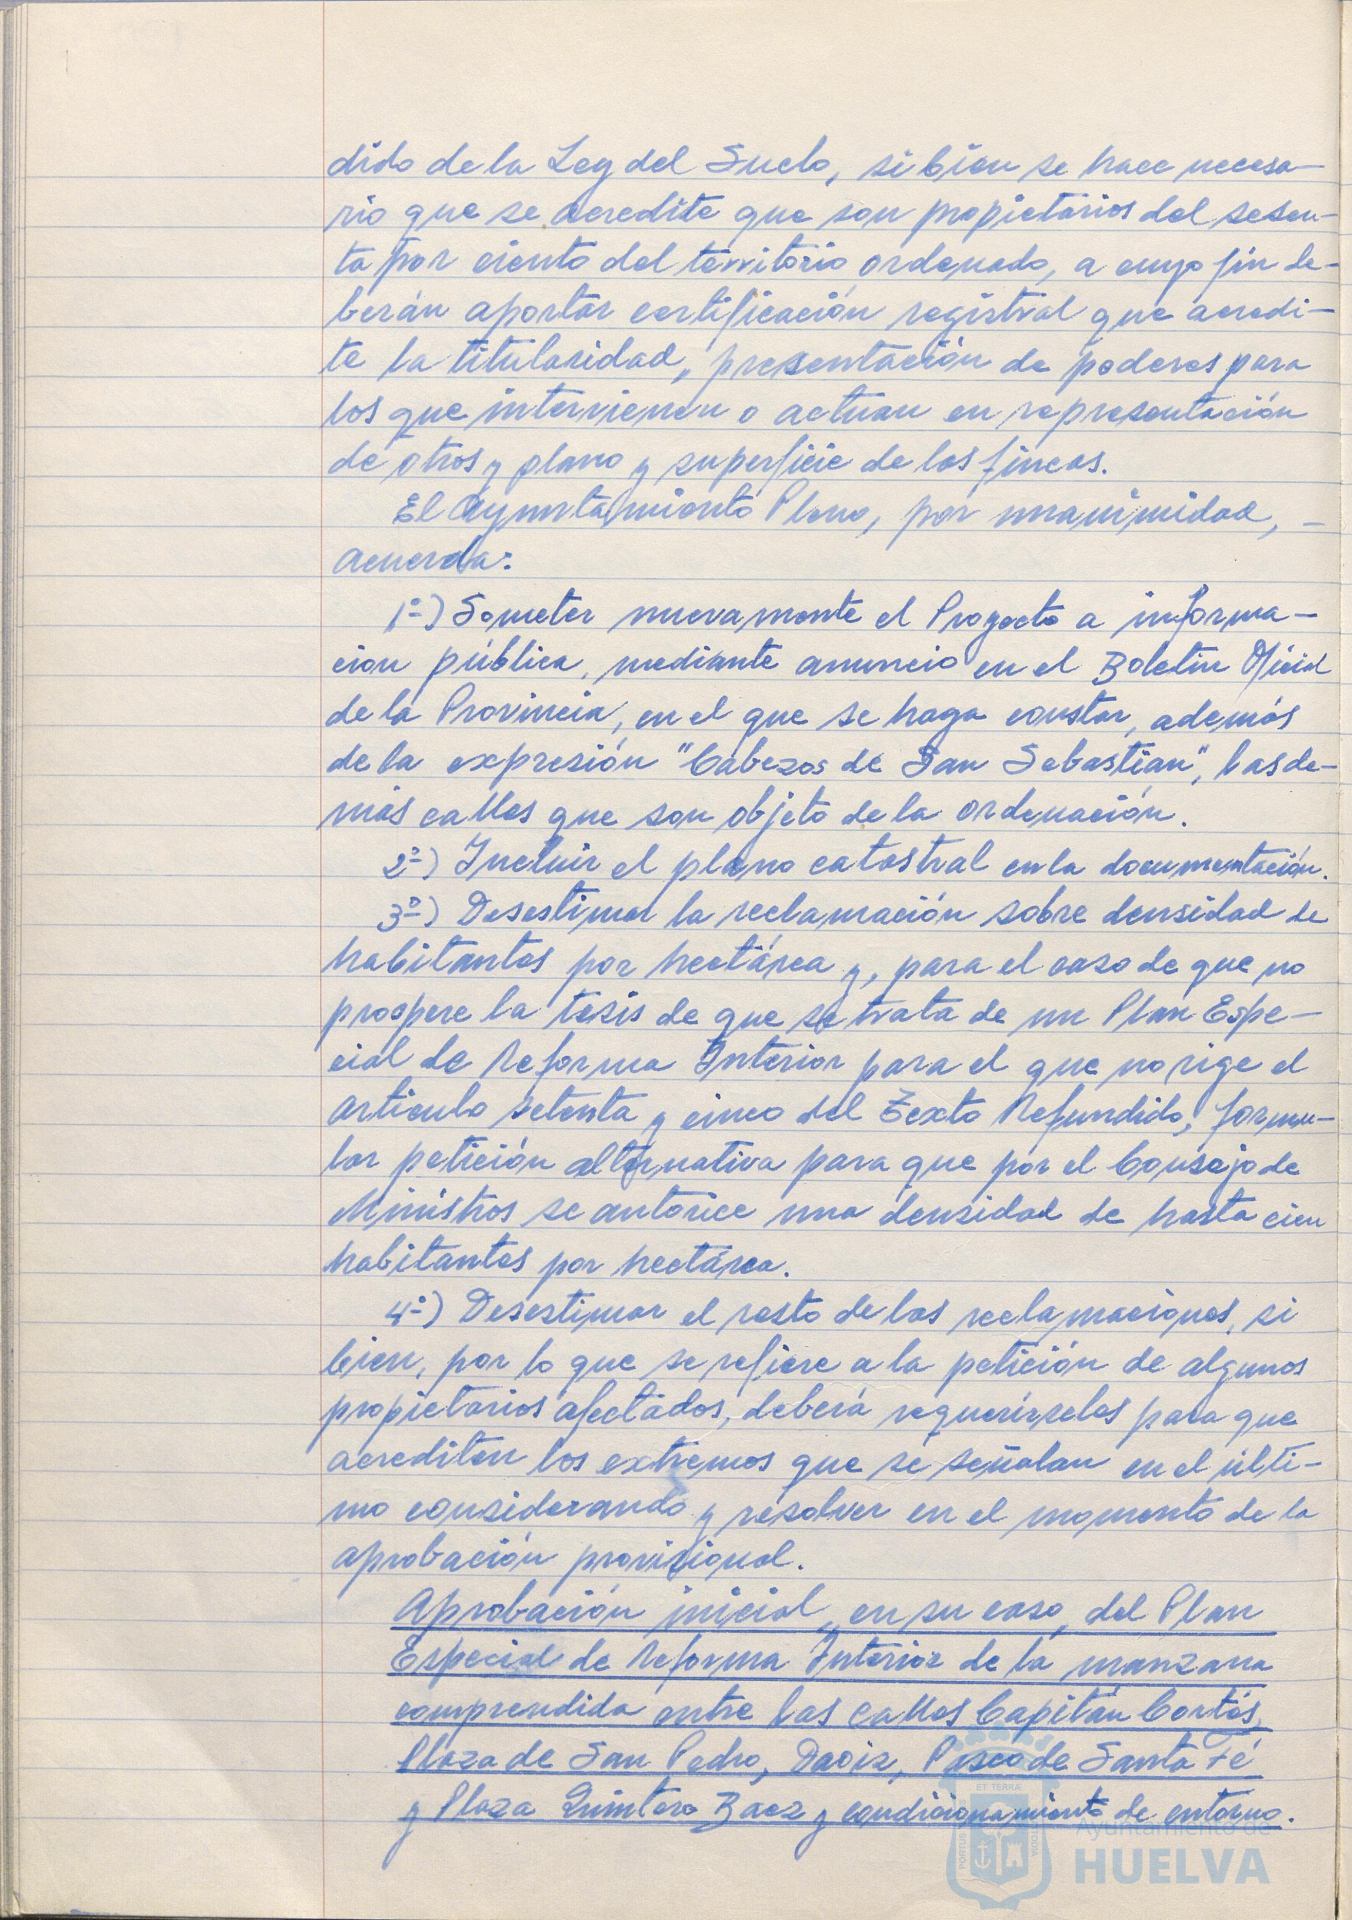 dido de la Ley del Suelo, si bien se hace necesa-
rio que se acredite que son propietarios del sesen-
ta por ciento del territorio ordenado, a cuyo fin de-
berán aportar certificación registral que acredi-
te la titularidad, presentación de poderes para
los que intervienen o actuan en representación
de otros y plano y superficie de las fincas.
El Ayuntamiento Pleno, por unanimidad, -
acuerda:
1º-) Someter nuevamente el Proyecto a informa-
cion pública, mediante anuncio en el Boletin Oficial
de la Provincia, en el que se haga constar, además
de la expresión "Cabezos de San Sebastian", las de-
más calles que son objeto de la ordenación.
2º-) Incluir el plano catastral en la documentación.
3º-) Desestimar la reclamación sobre densidad de
habitantes por hectárea y, para el caso de que no
prospere la tesis de que se trata de un Plan Espe-
cial de Reforma Interior para el que no rige el
articulo setenta y cinco del Texto Refundido, formu-
lar petición alternativa para que por el Consejo de
Ministros se autorice una densidad de hasta cien
habitantes por hectárea.
4º-) Desestimar el resto de las reclamaciones, si
bien, por lo que se refiere a la petición de algunos
propietarios afectados, deberá requerírseles para que
acrediten los extremos que se señalan en el últi-
mo considerando y resolver en el momento de la
aprobación provisional.
Aprobación inicial, en su caso, del Plan
Especial de Reforma Interior de la manzana
comprendida entre las calles Capitán Cortés,
Plaza de San Pedro, Daoiz, Paseo de Santa Fé
y Plaza Quintero Baez y condicionamiento de entorno.
ET TERRA
PORTUS
CUSTODIA
Ayuntamiento de
HUELVA